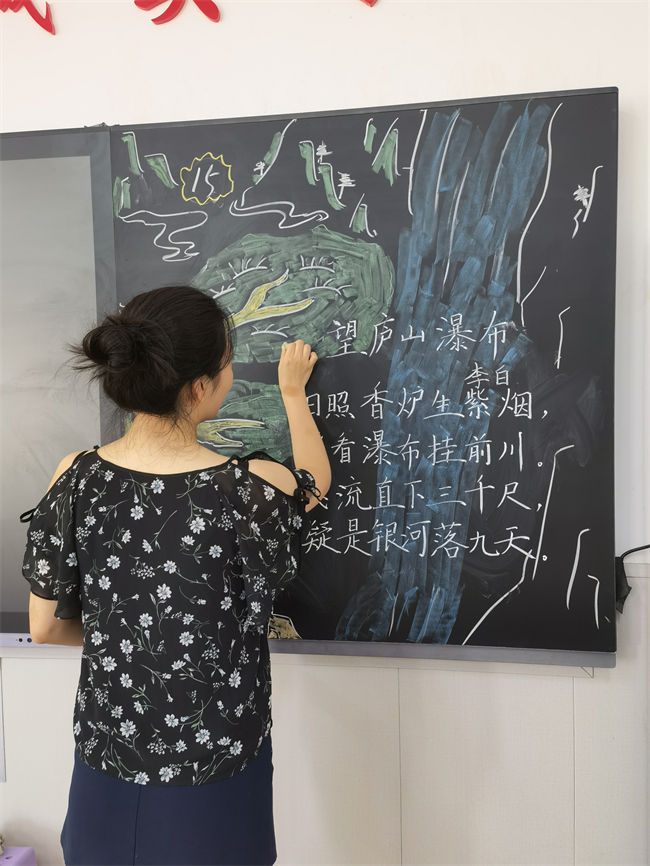 15
望庐山瀑布
李白
日照香炉生紫烟，
看瀑布挂前川。
流直下三千尺，
疑是银河落九天。